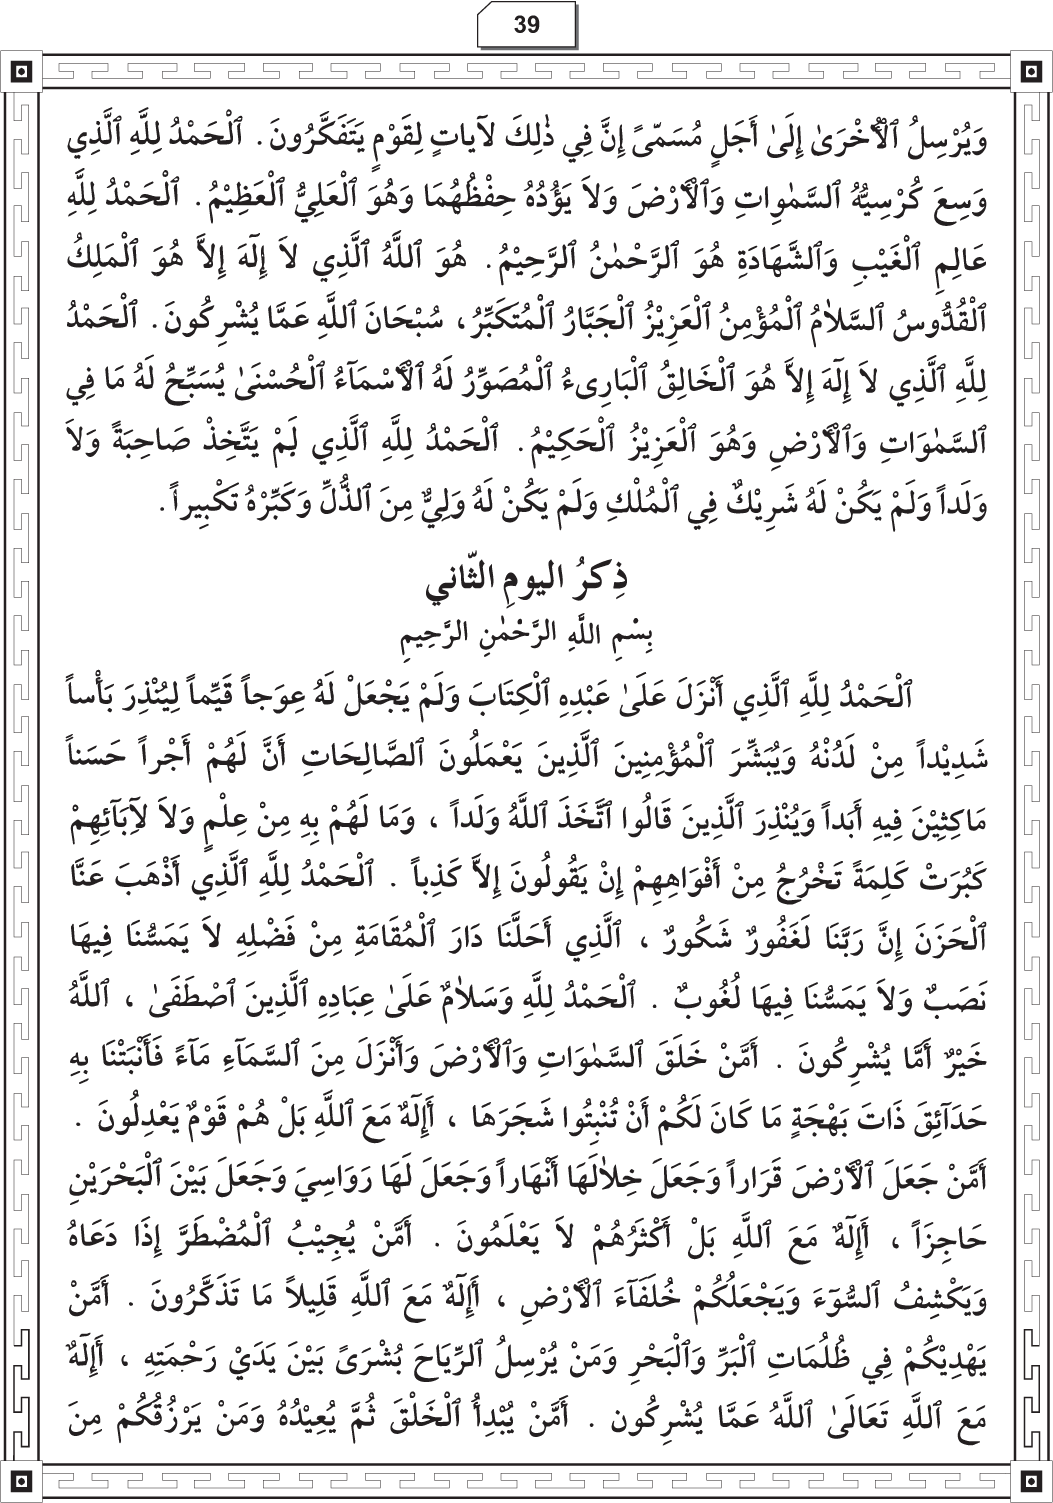 39
وَيُرْسِلُ ٱلْأُخْرَىٰ إِلَىٰ أَجَلٍ مُسَمّىً إِنَّ فِي ذٰلِكَ لآيَاتٍ لِقَوْمٍ يَتَفَكَّرُونَ. ٱلْحَمْدُ لِلَّهِ ٱلَّذِي
وَسِعَ كُرْسِيُّهُ ٱلسَّمٰوَاتِ وَٱلْأَرْضَ وَلاَ يَؤُدُهُ حِفْظُهُمَا وَهُوَ ٱلْعَلِيُّ ٱلْعَظِيْمُ. ٱلْحَمْدُ لِلَّهِ
عَالِمِ ٱلْغَيْبِ وَٱلشَّهَادَةِ هُوَ ٱلرَّحْمٰنُ ٱلرَّحِيْمُ. هُوَ ٱللَّهُ ٱلَّذِي لاَ إِلَهَ إِلاَّ هُوَ ٱلْمَلِكُ
ٱلْقُدُّوسُ ٱلسَّلاٰمُ ٱلْمُؤْمِنُ ٱلْعَزِيْزُ ٱلْجَبَّارُ ٱلْمُتَكَبِّرُ، سُبْحَانَ ٱللَّهِ عَمَّا يُشْرِكُونَ. ٱلْحَمْدُ
لِلَّهِ ٱلَّذِي لاَ إِلٓهَ إِلاَّ هُوَ ٱلْخَالِقُ ٱلْبَارِىءُ ٱلْمُصَوِّرُ لَهُ ٱلْأَسْمَآءُ ٱلْحُسْنَىٰ يُسَبِّحُ لَهُ مَا فِي
ٱلسَّمٰوَاتِ وَٱلْأَرْضِ وَهُوَ ٱلْعَزِيْزُ ٱلْحَكِيْمُ. ٱلْحَمْدُ لِلَّهِ ٱلَّذِي لَمْ يَتَّخِذْ صَاحِبَةً وَلاَ
وَلَداً وَلَمْ يَكُنْ لَهُ شَرِيْكٌ فِي ٱلْمُلْكِ وَلَمْ يَكُنْ لَهُ وَلِيٌّ مِنَ ٱلذُّلِّ وَكَبِّرْهُ تَكْبِيراً.
ذِكرُ اليومِ الثّاني
بِسْمِ اللَّهِ الرَّحْمٰنِ الرَّحِيمِ
ٱلْحَمْدُ لِلَّهِ ٱلَّذِي أَنْزَلَ عَلَىٰ عَبْدِهِ ٱلْكِتَابَ وَلَمْ يَجْعَلْ لَهُ عِوَجاً قَيِّماً لِيُنْذِرَ بَأْساً
شَدِيْداً مِنْ لَدُنْهُ وَيُبَشِّرَ ٱلْمُؤْمِنِينَ ٱلَّذِينَ يَعْمَلُونَ ٱلصَّالِحَاتِ أَنَّ لَهُمْ أَجْراً حَسَناً
مَاكِثِيْنَ فِيهِ أَبَداً وَيُنْذِرَ ٱلَّذِينَ قَالُوا ٱتَّخَذَ ٱللَّهُ وَلَداً ، وَمَا لَهُمْ بِهِ مِنْ عِلْمٍ وَلاَ لآِبَآئِهِمْ
كَبُرَتْ كَلِمَةً تَخْرُجُ مِنْ أَفْوَاهِهِمْ إِنْ يَقُولُونَ إِلاَّ كَذِباً . ٱلْحَمْدُ لِلَّهِ ٱلَّذِي أَذْهَبَ عَنَّا
ٱلْحَزَنَ إِنَّ رَبَّنَا لَغَفُورٌ شَكُورٌ ، ٱلَّذِي أَحَلَّنَا دَارَ ٱلْمُقَامَةِ مِنْ فَضْلِهِ لاَ يَمَسُّنَا فِيهَا
نَصَبٌ وَلاَ يَمَسُّنَا فِيهَا لُغُوبٌ . ٱلْحَمْدُ لِلَّهِ وَسَلاٰمٌ عَلَىٰ عِبَادِهِ ٱلَّذِينَ ٱصْطَفَىٰ ، ٱللَّهُ
خَيْرٌ أَمَّا يُشْرِكُونَ . أَمَّنْ خَلَقَ ٱلسَّمٰوَاتِ وَٱلْأَرْضَ وَأَنْزَلَ مِنَ ٱلسَّمَآءِ مَآءً فَأَنْبَتْنَا بِهِ
حَدَآئِقَ ذَاتَ بَهْجَةٍ مَا كَانَ لَكُمْ أَنْ تُنْبِتُوا شَجَرَهَا ، أَإِلَهٌ مَعَ ٱللَّهِ بَلْ هُمْ قَوْمٌ يَعْدِلُونَ .
أَمَّنْ جَعَلَ ٱلْأَرْضَ قَرَاراً وَجَعَلَ خِلاٰلَهَا أَنْهَاراً وَجَعَلَ لَهَا رَوَاسِيَ وَجَعَلَ بَيْنَ ٱلْبَحْرَيْنِ
حَاجِزَاً ، أَإِلٓهٌ مَعَ ٱللَّهِ بَلْ أَكْثَرُهُمْ لاَ يَعْلَمُونَ . أَمَّنْ يُجِيْبُ ٱلْمُضْطَرَّ إِذَا دَعَاهُ
وَيَكْشِفُ ٱلسُّوٓءَ وَيَجْعَلُكُمْ خُلَفَآءَ ٱلْأَرْضِ ، أَإِلٓهٌ مَعَ ٱللَّهِ قَلِيلاً مَا تَذَكَّرُونَ . أَمَّنْ
يَهْدِيْكُمْ فِي ظُلُمَاتِ ٱلْبَرِّ وَٱلْبَحْرِ وَمَنْ يُرْسِلُ ٱلرِّيَاحَ بُشْرَىً بَيْنَ يَدَيْ رَحْمَتِهِ ، أَإِلٓهٌ
مَعَ ٱللَّهِ تَعَالَىٰ ٱللَّهُ عَمَّا يُشْرِكُون . أَمَّنْ يُبْدِأُ ٱلْخَلْقَ ثُمَّ يُعِيْدُهُ وَمَنْ يَرْزُقُكُمْ مِنَ